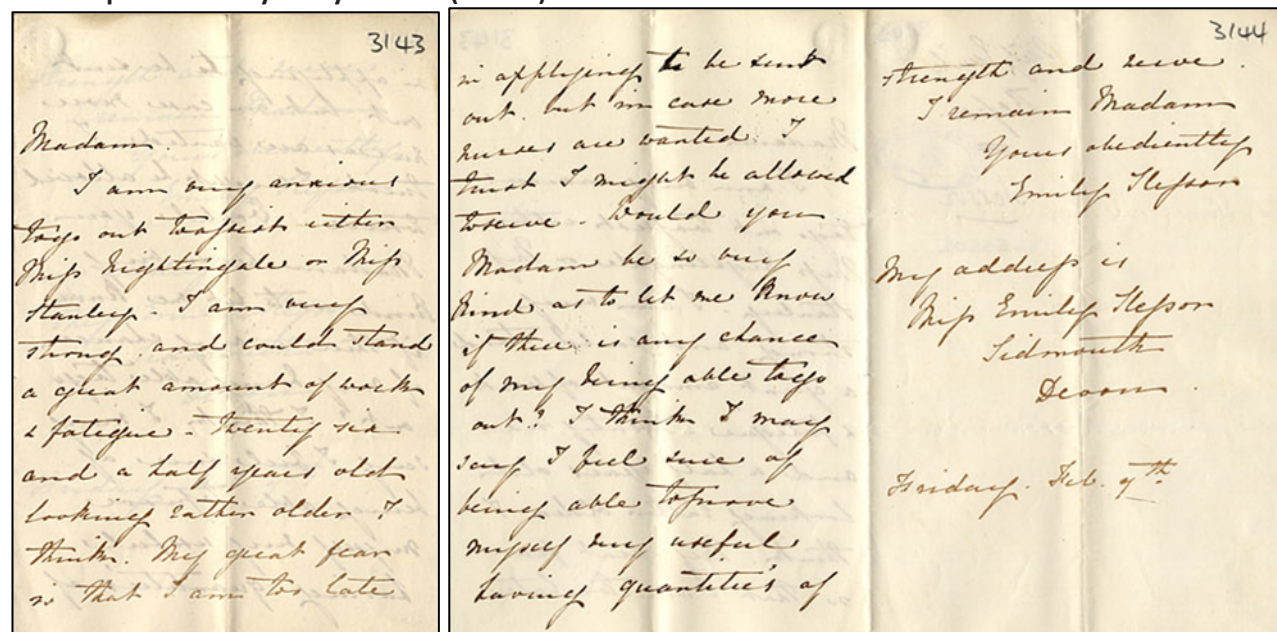 3143
Madam
I am very anxious
to go out to assist either
Miss Nightingale or Miss
Stanley - I am very
strong. and could stand
a great amount of work
& fatigue - Twenty six
and a half years old
looking rather older I
think. My great fear
is that I am too late
3144
in applying to be sent
out. but in case more
nurses are wanted. I
trust I might be allowed
to serve - Would you
Madam be so very
kind as to let me know
if there is any chance
of my being able to go
out? I think I may
say I feel sure of
being able to prove
myself very useful
having quantities of
strength and nerve.
I remain Madam
Yours obediently
Emily
My address is
Miss Emily
Sidmouth
Devon
Friday. Feb. 9th